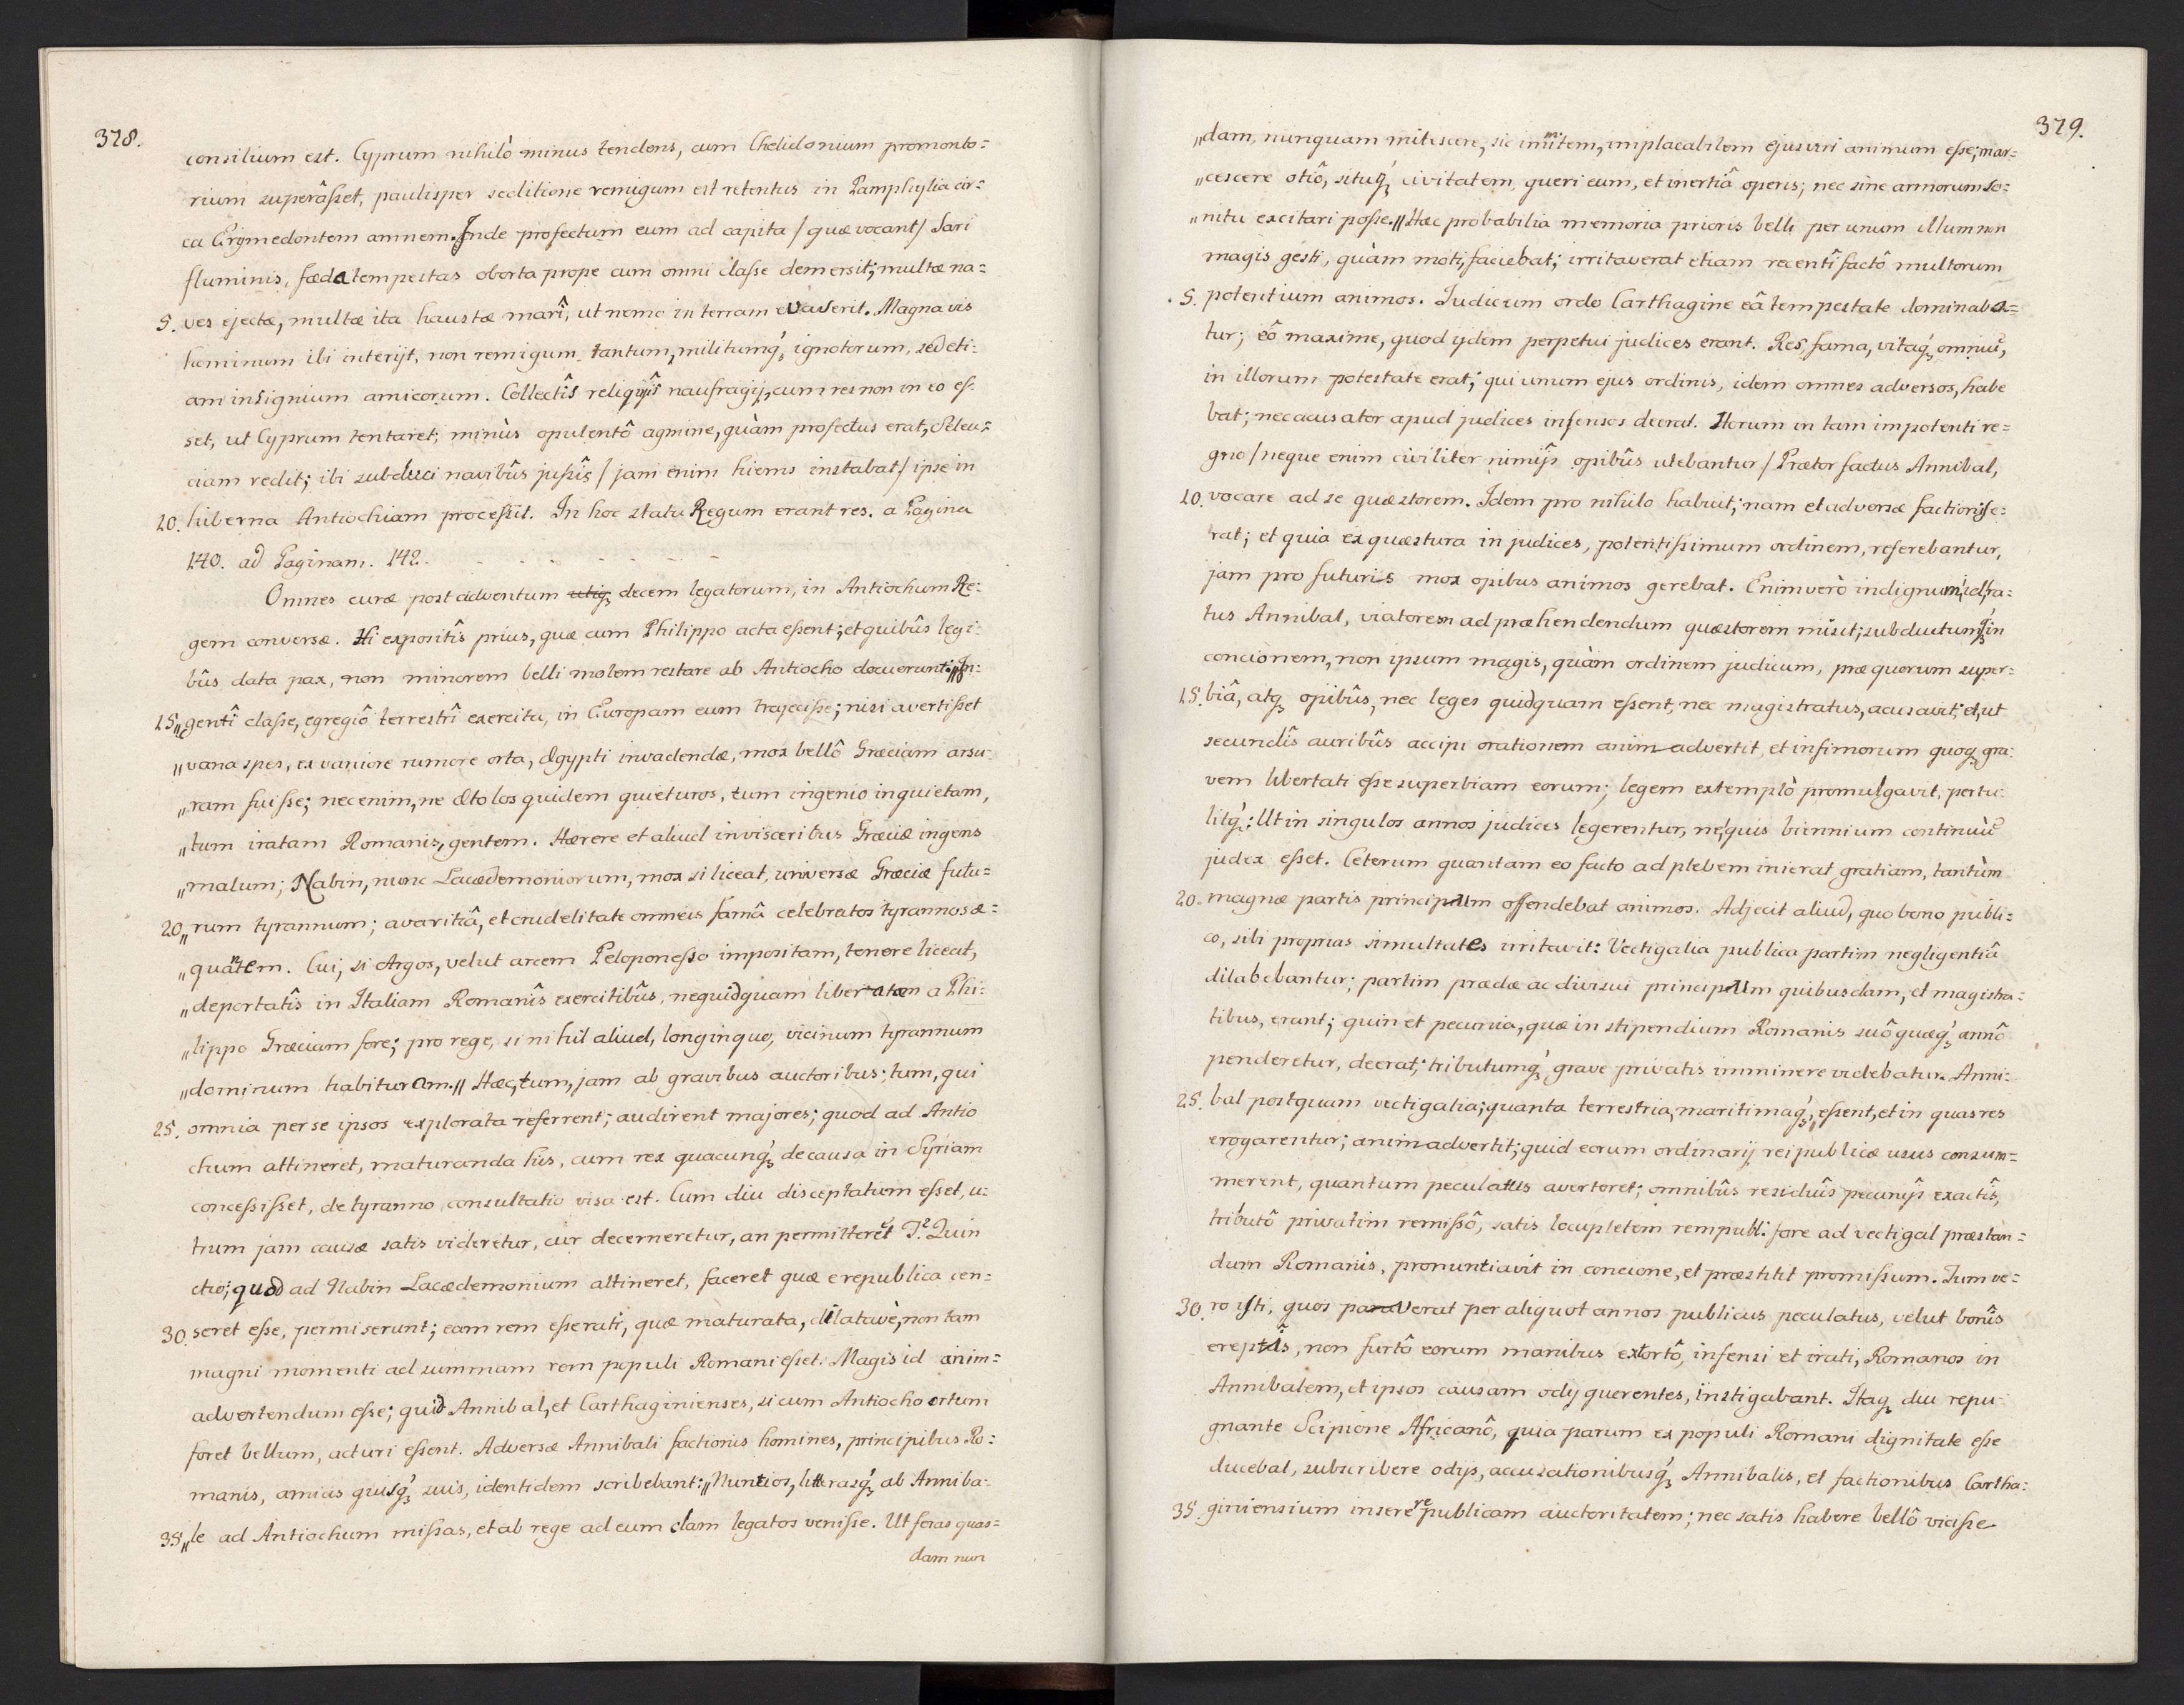 378.
consilium est. Cyprum nihilò minus tendens, cum Chelidonium promonto=
rium superâsset, paulisper seditione remigum est retentus in Pamphylia cir=
ca Erymedontem amnem. Inde profectum eum ad capita / quæ vocant / Sari
fluminis, fæda tempestas oborta prope cum omni classe demersit; multæ na=
5. ves ejectæ, multæ ita haustæ marî, ut nemo in terram evaserit. Magna vis
hominum ibi interijt, non remigum tantum, militumq́ꝫ ignotorum, sed eti=
am insignium amicorum. Collectîs reliquijs naufragij, cum res non in eo es=
set, ut Cyprum tentaret; minùs opulentô agmine, quàm profectus erat, Seleu=
ciam redit; ibi subduci navibûs jussîs / jam enim hiems instabat / ipse in
10. hiberna Antiochiam processit. In hoc statu Regum erant res. a Pagina
140. ad Paginam. 142.
Omnes curæ post adventum utiqꝫ decem legatorum, in Antiochum Re=
gem conversæ. Hi expositîs prius, quæ cum Philippo acta essent; et quibûs legi=
bûs data pax, non minorem belli molem restare ab Antiocho docuerunt: „In=
15. „gentî classe, egregiô terrestrî exercitu, in Europam eum trajecisse; nisi avertisset
„vana spes, ex vaniore rumore orta, Ægypti invadendæ, mox bellô Græciam arsu=
„ram fuisse; nec enim, ne Ætolos quidem quieturos, tum ingenio inquietam,
„tum iratam Romanis, gentem. Hærere et aliud in visceribus Græciæ ingens
„malum; Nabin, nunc Lacædemoniorum, mox si liceat, universæ Græciæ futu=
20. „rum tyrannum; avaritiâ, et crudelitate omneis famâ celebratos tyrannos æ=
„quantem. Cui, si Argos, velut arcem Peloponesso impositam, tenere liceat,
„deportatîs in Italiam Romanîs exercitibûs, nequidquam liberatam a Phi=
„lippo Græciam fore; pro rege, si nihil aliud, longinquo, vicinum tyrannum
„dominum habituram. „ Hæc, tum, jam ab gravibus auctoribus; tum, qui
25. omnia per se ipsos explorata referrent; audirent majores; quod ad Antio
chum attineret, maturanda his, cum rex quacunq́ꝫ de causa in Syriam
concessisset, de tyranno consultatio visa est. Cum diu disceptatum esset, u=
trum jam causæ satis videretur, cur decerneretur, an permitteret T. Quin
ctio; quod ad Nabin Lacædemonium attineret, faceret quæ e republica cen=
30. seret esse, permiserunt; eam rem esse rati, quæ maturata, dilatavè, non tam
magni momenti ad summam rem populi Romani esset. Magis id anim=
advertendum esse; quid Annibal, et Carthaginienses, si cum Antiocho ortum
foret bellum, acturi essent. Adversæ Annibali factionis homines, principibus Ro=
manis, amicis quisq́ꝫ suis, identidem scribebant: „Nuntios, litterasq́ꝫ ab Anniba=
35. „le ad Antiochum missas, et ab rege ad eum clam legatos venisse. Ut feras quas=
dam nun
379.
„dam, nunquam mitescere, sic immitem, implacabilem ejus viri animum esse; mar=
„cescere otiô, situq́ꝫ civitatem queri eum, et inertiâ operis; nec sine armorum so=
„nitu excitari posse. „ Hæc probabilia memoria prioris belli per unum illum non
magis gesti, quàm moti, faciebat; irritaverat etiam recentî factô multorum
5. potentium animos. Judicum ordo Carthagine eâ tempestate dominaba=
tur; eô maxime, quod ijdem perpetui judices erant. Res, fama, vitaq́ꝫ omniũ,
in illorum potestate erat; qui unum ejus ordinis, idem omnes adversos, habe
bat; nec acusator apud judices infensos deerat. Horum in tam impotenti re=
gno / neque enim civiliter nimijs opibûs utebantur / Prætor factus Annibal,
10. vocare ad se quæstorem. Idem pro nihilo habuit; nam et adversæ factionis e=
rat; et quia ex quæstura in judices, potentissimum ordinem, referebantur,
jam pro futuris mox opibus animos gerebat. Enimverò indignum id ra=
tus Annibal, viatorem ad præhendendum quæstorem misit; subductumq́ꝫ in
concionem, non ipsum magis, quàm ordinem judicum, præ quorum super=
15. biâ, atqꝫ opibûs, nec leges quidquam essent, nec magistratus, acusavit; et, ut
secundîs auribûs accipi orationem animadvertit, et infimorum quoqꝫ gra=
vem libertati esse superbiam eorum; legem extemplò promulgavit, pertu=
litq́ꝫ: Ut in singulos annos judices legerentur, néquis biennium continuũ
judex esset. Ceterum quantam eo facto ad plebem inierat gratiam, tantùm
20. magnæ partis principum offendebat animos. Adjecit aliud, quo bono publi=
co, sibi proprias simultates irritavit: Vectigalia publica partim negligentiâ
dilabebantur; partim prædæ ac divisui principum quibusdam, et magistra=
tibus, erant; quin et pecunia, quæ in stipendium Romanis suô quæq́ꝫ annô
penderetur, deerat; tributumq́ꝫ grave privatis imminere videbatur. Anni=
25. bal postquam vectigalia; quanta terrestria, maritimaq́ꝫ, essent, et in quas res
erogarentur; animadvertit; quid eorum ordinarij reipublicæ usus consum=
merent, quantum peculatus averteret; omnibûs residuîs pecunijs exactîs,
tributô privatim remissô, satis locupletem rempubl: fore ad vectigal præstan=
dum Romanis, pronuntiavit in concione, et præstitit promissum. Tum ve=
30. ro isti, quos paverat per aliquot annos publicus peculatus, velut bonîs
ereptîs, non furtô eorum manibus extortô, infensi et irati, Romanos in
Annibalem, et ipsos causam odij querentes, instigabant. Itaqꝫ diu repu
gnante Scipione Africanô, quia parum ex populi Romani dignitate esse
ducebat, subscribere odijs, accusationibusq́ꝫ Annibalis, et factionibus Cartha=
35. giniensium inserere publicam auctoritatem; nec satis habere bellô vicisse